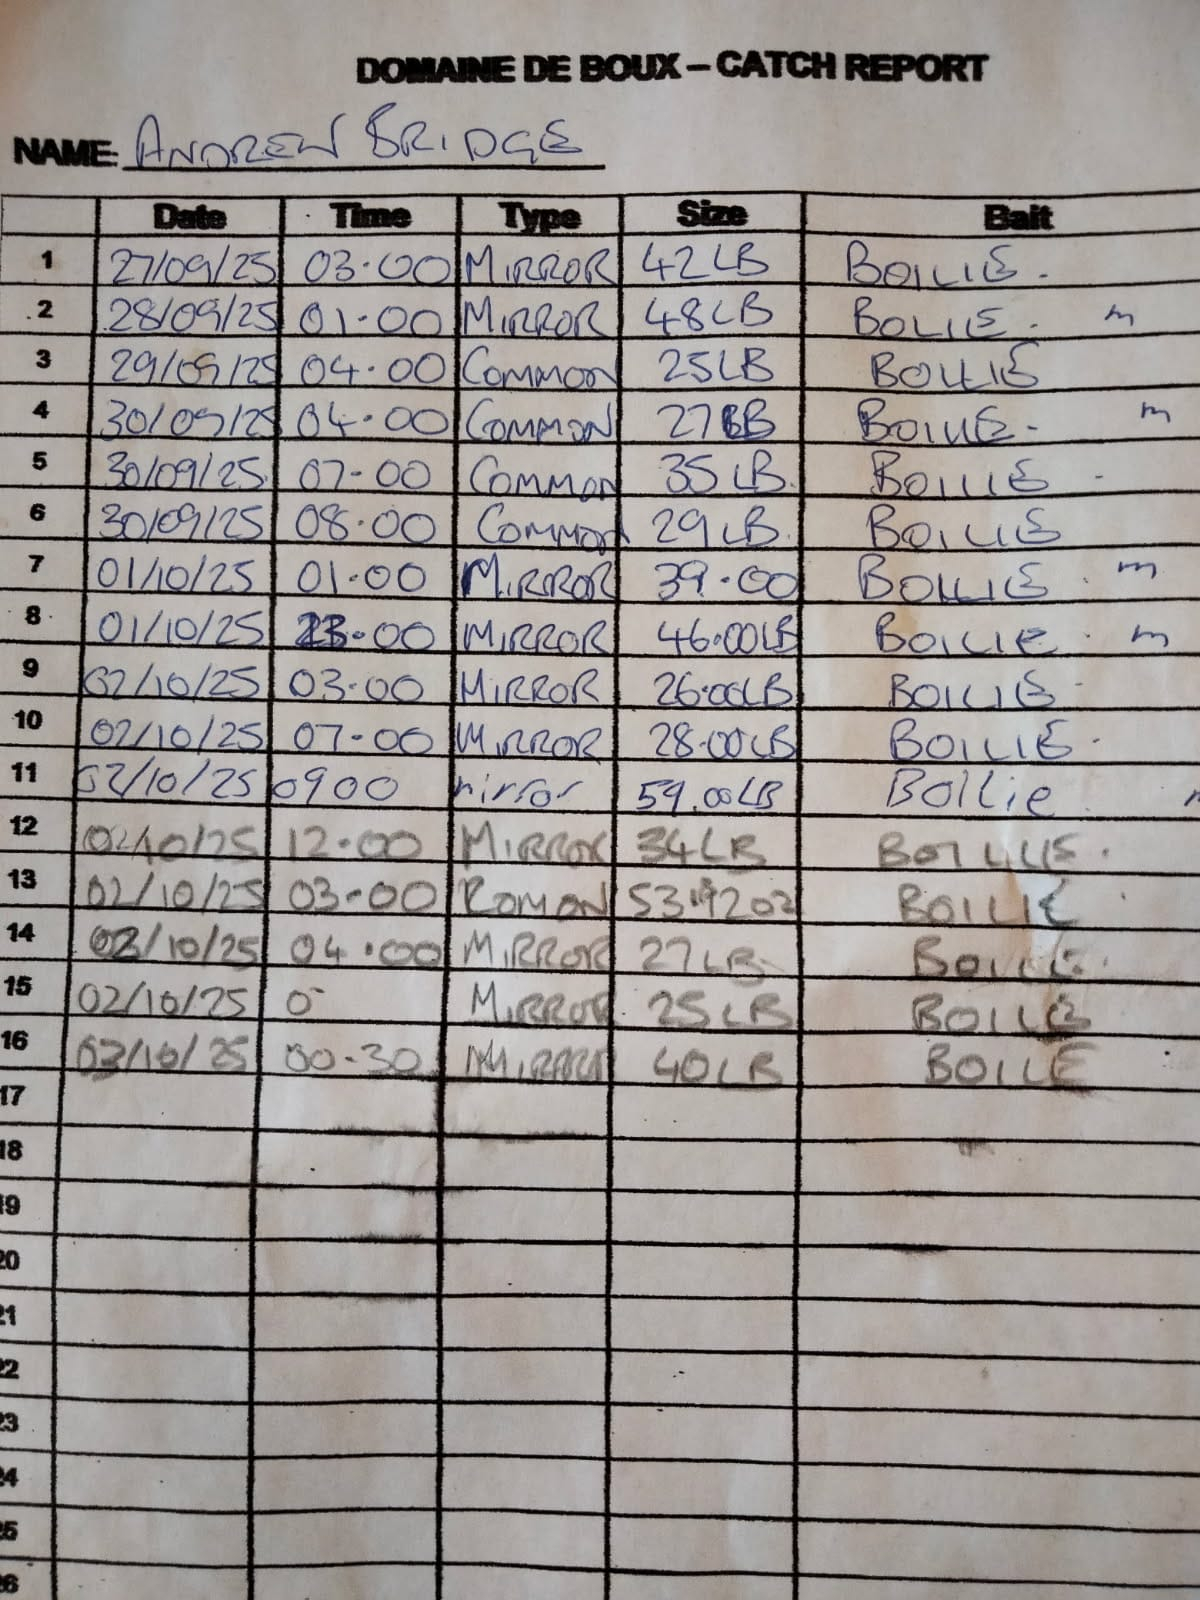 DOMAINE DE BOUX – CATCH REPORT
NAME: ANDREW BRIDGE
Date Time Type Size Bait
1 27/09/25 03.00 MIRROR 42LB BOILIE.
2 28/09/25 01.00 MIRROR 48LB BOLIE. m
3 29/09/25 04.00 COMMON 25LB BOLLIE
4 30/09/25 04.00 COMMON 27LB BOILIE. m
5 30/09/25 07-00 COMMON 35LB. BOILIE
6 30/09/25 08.00 COMMON 29LB. BOILIE
7 01/10/25 01.00 MIRROR 39.00 BOLLIE m
8 01/10/25 23.00 MIRROR 46.00LB BOILIE m
9 02/10/25 03.00 MIRROR 26.00LB BOILIE
10 02/10/25 07-00 MIRROR 28.00LB BOILIE.
11 02/10/25 0900 mirror 59.00LB Bollie
12 02/10/25 12.00 MIRROR 34LB
13 02/10/25 03-00 BOILIE
14 02/10/25 04.00 MIRROR 27LB
15 02/10/25 MIRROR 25LB BOILE
16 03/10/25 00-30 40LB BOILE
17
18
19
20
21
22
23
24
25
26